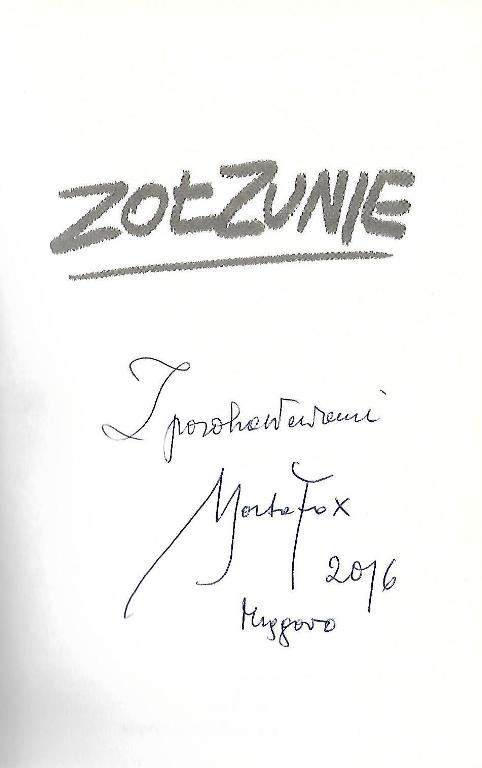 ZOŁZUNIE
Z pozdrowieniami
Marta Fox
2016